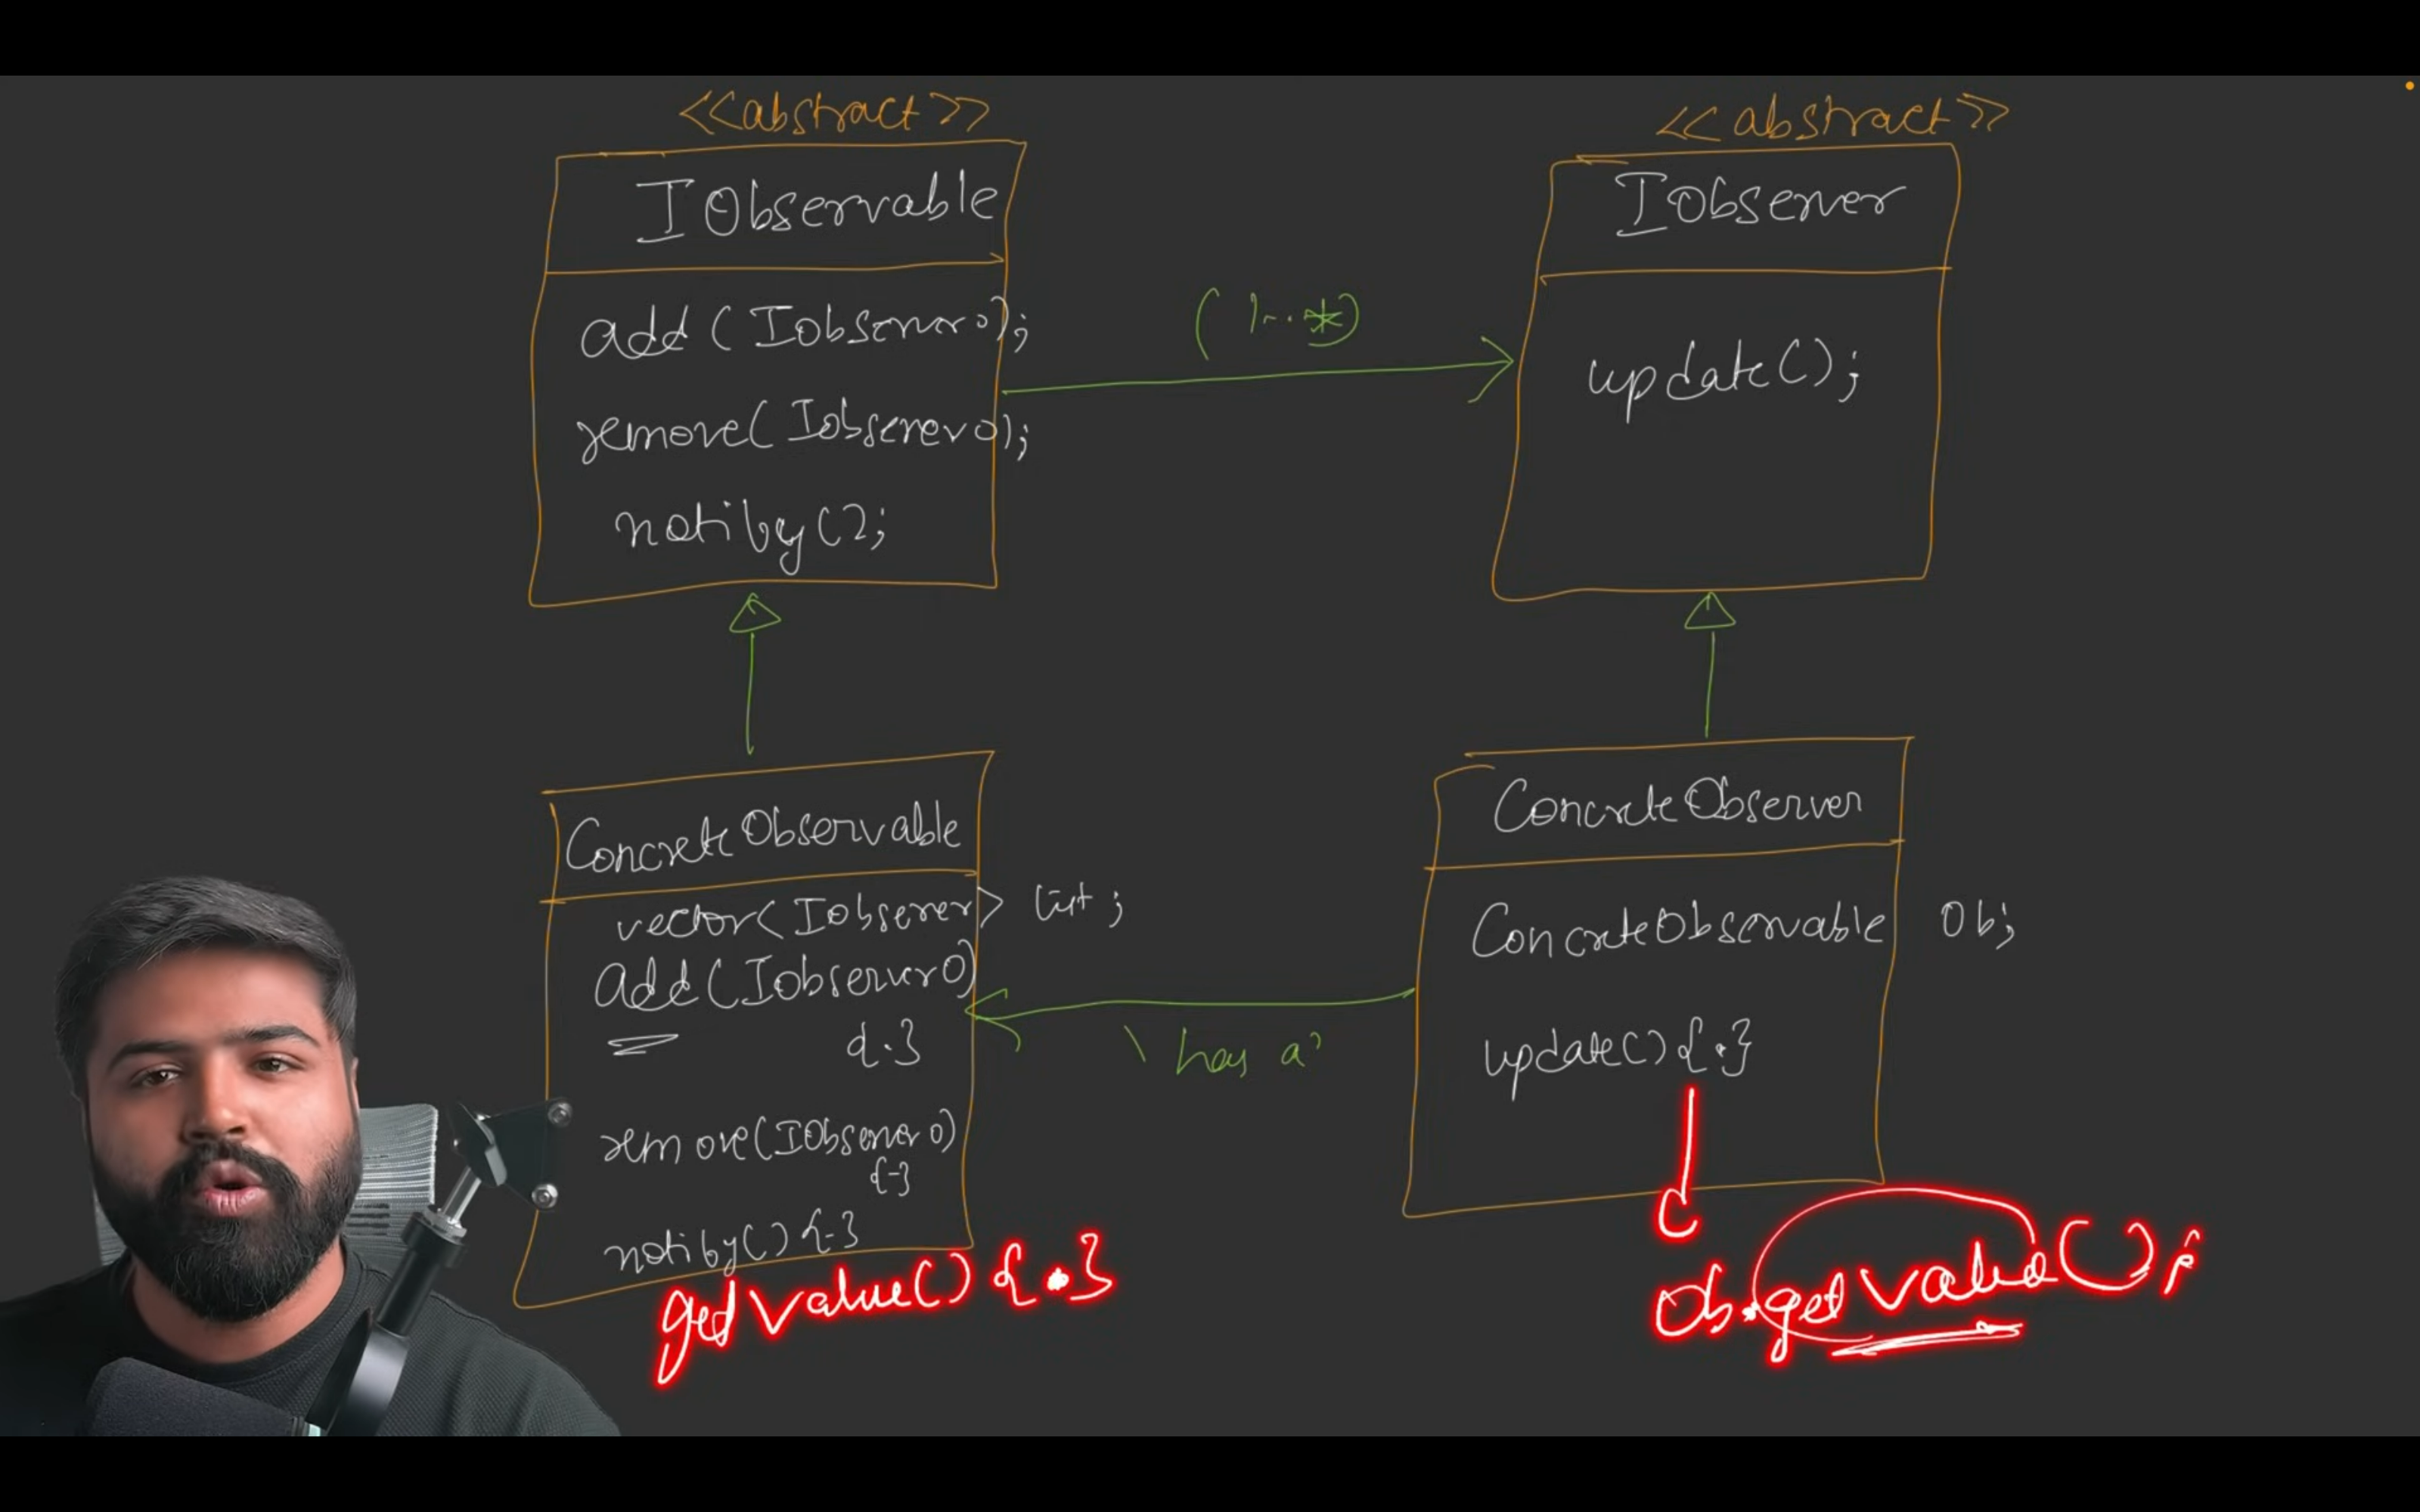 <<abstract>>
IObservable
add(IObserver o);
remove(IObserver o);
notify();
(1..*)
<<abstract>>
IObserver
update();
ConcreteObservable
vector<IObserver> list;
add(IObserver O)
{.}
remove(IObserver o)
{-}
notify() {-}
getValue() {.}
'has a'
ConcreteObserver
ConcreteObservable Ob;
update() {.}
Ob.getValue();